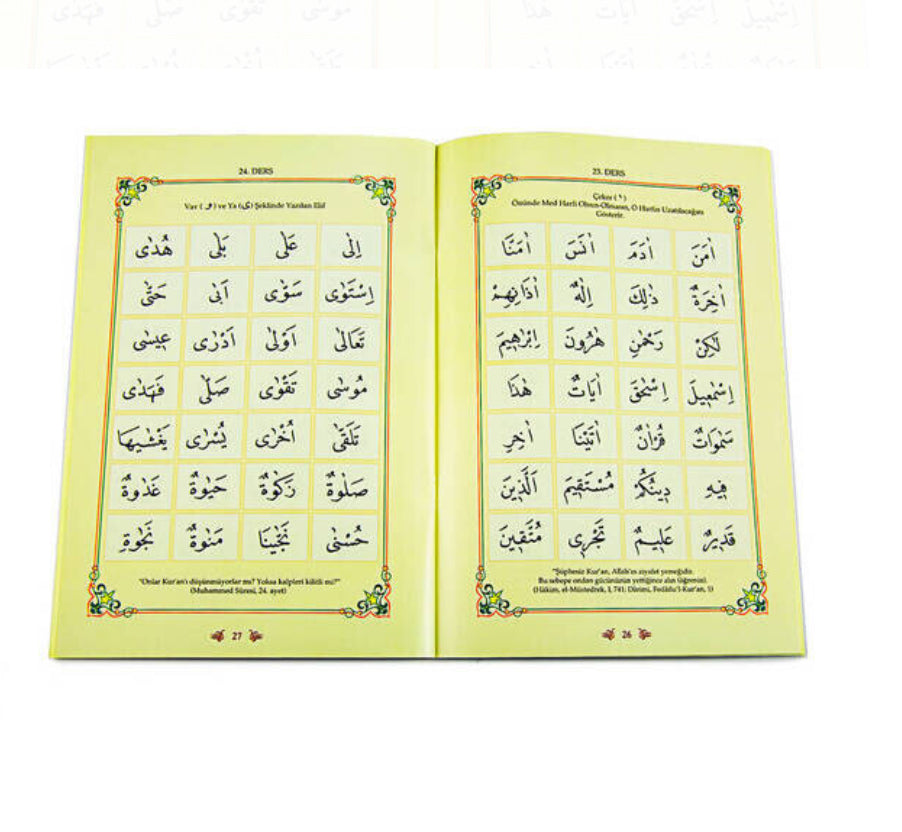 23. DERS
Çeker ( ٰ )
Önünde Med Harfi Olsun-Olmasın, O Harfin Uzatılacağını
Gösterir.
اٰمَنَ اٰدَمَ اٰنَسَ اٰمَنَّا
اٰخِرَةٌ ذٰلِكَ اِلٰهٌ اٰذَانِهِمْ
لٰكِنْ رَحْمٰنِ هٰرُونَ اِبْرٰهِيمَ
اِسْمٰعِيلَ اِسْحٰقَ اٰيَاتٌ هٰذَا
سَمٰوَاتٌ قُرْاٰنٌ اٰتَيْنَا اٰخِرِ
فِيهِ دِينُكُمْ مُسْتَقِيمَ اَلَّذِينَ
قَدِيرٌ عَلِيمٌ تَجْرِى مُتَّقِينَ
"Şüphesiz Kur'an, Allah'ın ziyafet yemeğidir.
Bu sebepe ondan gücünüzün yettiğince alın (öğrenin).
(Hâkim, el-Müstedrek, I, 741; Dârimi, Fedâilu'l-Kur'an, 1)
26
24. DERS
Vav ( و ) ve Ya (ى) Şeklinde Yazılan Elif
اِلٰى عَلٰى بَلٰى هُدٰى
اِسْتَوٰى سَوّٰى اَبٰى حَتّٰى
تَعَالٰى اَوْلٰى اَدْرٰى عِيسٰى
مُوسٰى تَقْوٰى صَلّٰى فَهَدٰى
تَلَقّٰى اُخْرٰى يُسْرٰى يَغْشٰيهَا
صَلٰوةٌ زَكٰوةٌ حَيٰوةٌ غَدٰوةٌ
حُسْنٰى نَجّٰينَا مَنٰوةٌ نَجٰوةِ
"Onlar Kur'an'ı düşünmüyorlar mı? Yoksa kalpleri kilitli mi?"
(Muhammed Sûresi, 24. ayet)
27